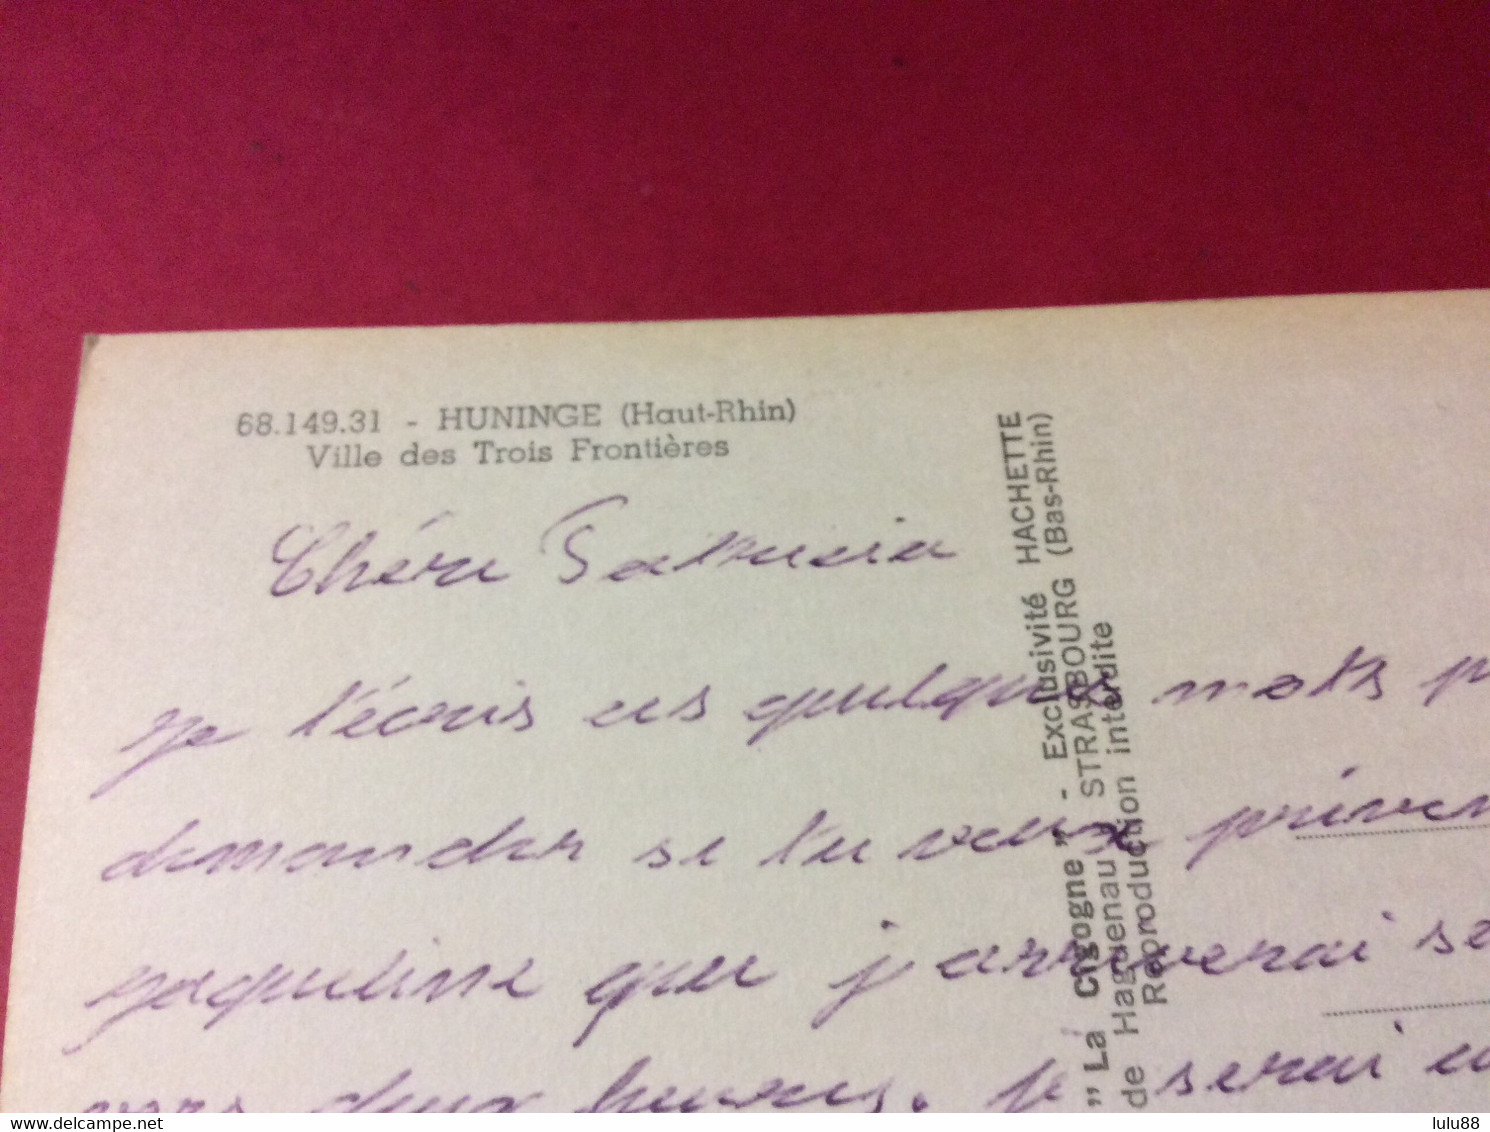 68.149.31 - HUNINGE (Haut-Rhin)
Ville des Trois Frontières
Chéri Patricia
je t'écris ces quelques mots p
demander si tu veux préven
jaqueline que j'arriverai se
vers deux heures. je serai
" La Cigogne " - Exclusivité HACHETTE
de Haguenau STRASBOURG (Bas-Rhin)
Reproduction interdite
delcampe.net
lulu88